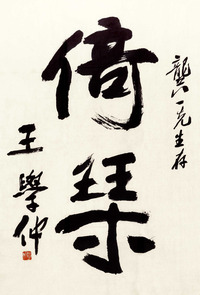 龔一先生存
倚琴
王學仲